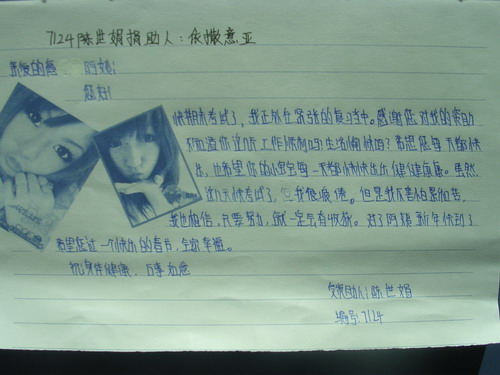 7124陈世娟捐助人：依撒意亚
亲爱的 阿姨：
您好！
快期末考试了，我正处在紧张的复习中。感谢您对我的资助
不知道你这几天工作顺利吗？生活愉快吗？希望您每天都快
乐，也希望你的小宝宝每一天都快快乐乐健健康康。虽然
这几天快考试了， 我很疲倦。但是我不害怕 ，
我也相信，只要努力，就一定会有收获。对了阿姨新年快到了
希望您过一个快乐的春节，全家幸福。
祝：身体健康，万事如意
受助人：陈世娟
编号：7124